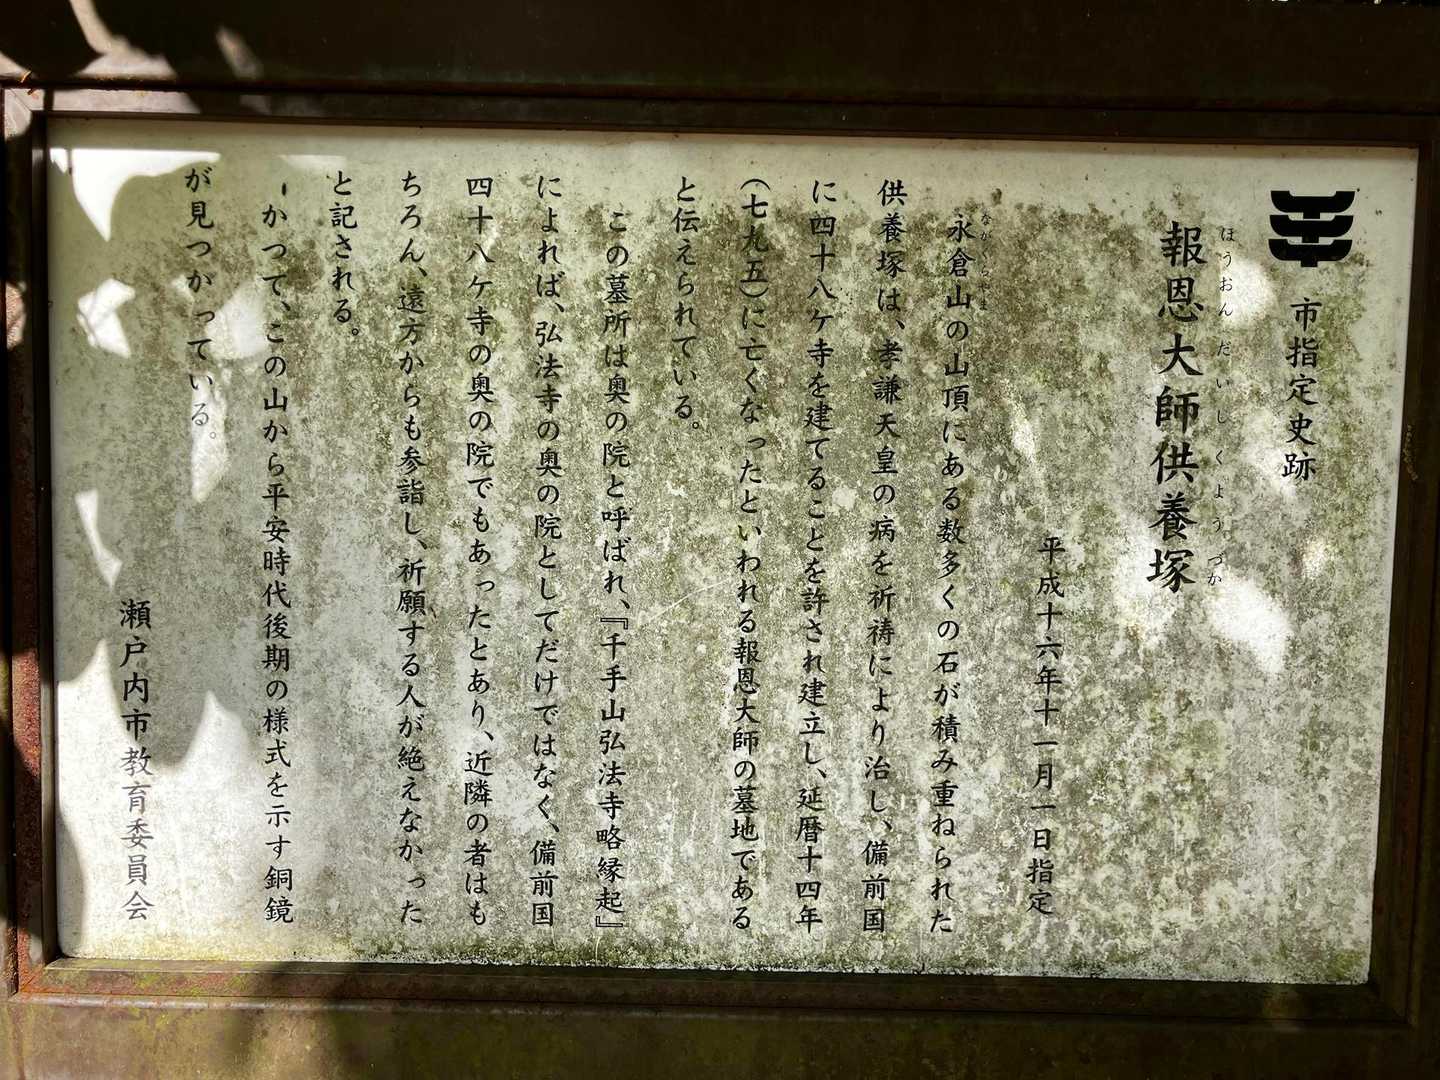 市指定史跡
ほうおんだいしくようづか
報恩大師供養塚
平成十六年十一月一日指定
ながくらやま
永倉山の山頂にある数多くの石が積み重ねられた
供養塚は、孝謙天皇の病を祈祷により治し、備前国
に四十八ケ寺を建てることを許され建立し、延暦十四年
(七九五)に亡くなったといわれる報恩大師の墓地である
と伝えられている。
この墓所は奥の院と呼ばれ、『千手山弘法寺略縁起』
によれば、弘法寺の奥の院としてだけではなく、備前国
四十八ケ寺の奥の院でもあったとあり、近隣の者はも
ちろん、遠方からも参詣し、祈願する人が絶えなかった
と記される。
かつて、この山から平安時代後期の様式を示す銅鏡
が見つかっている。
瀬戸内市教育委員会